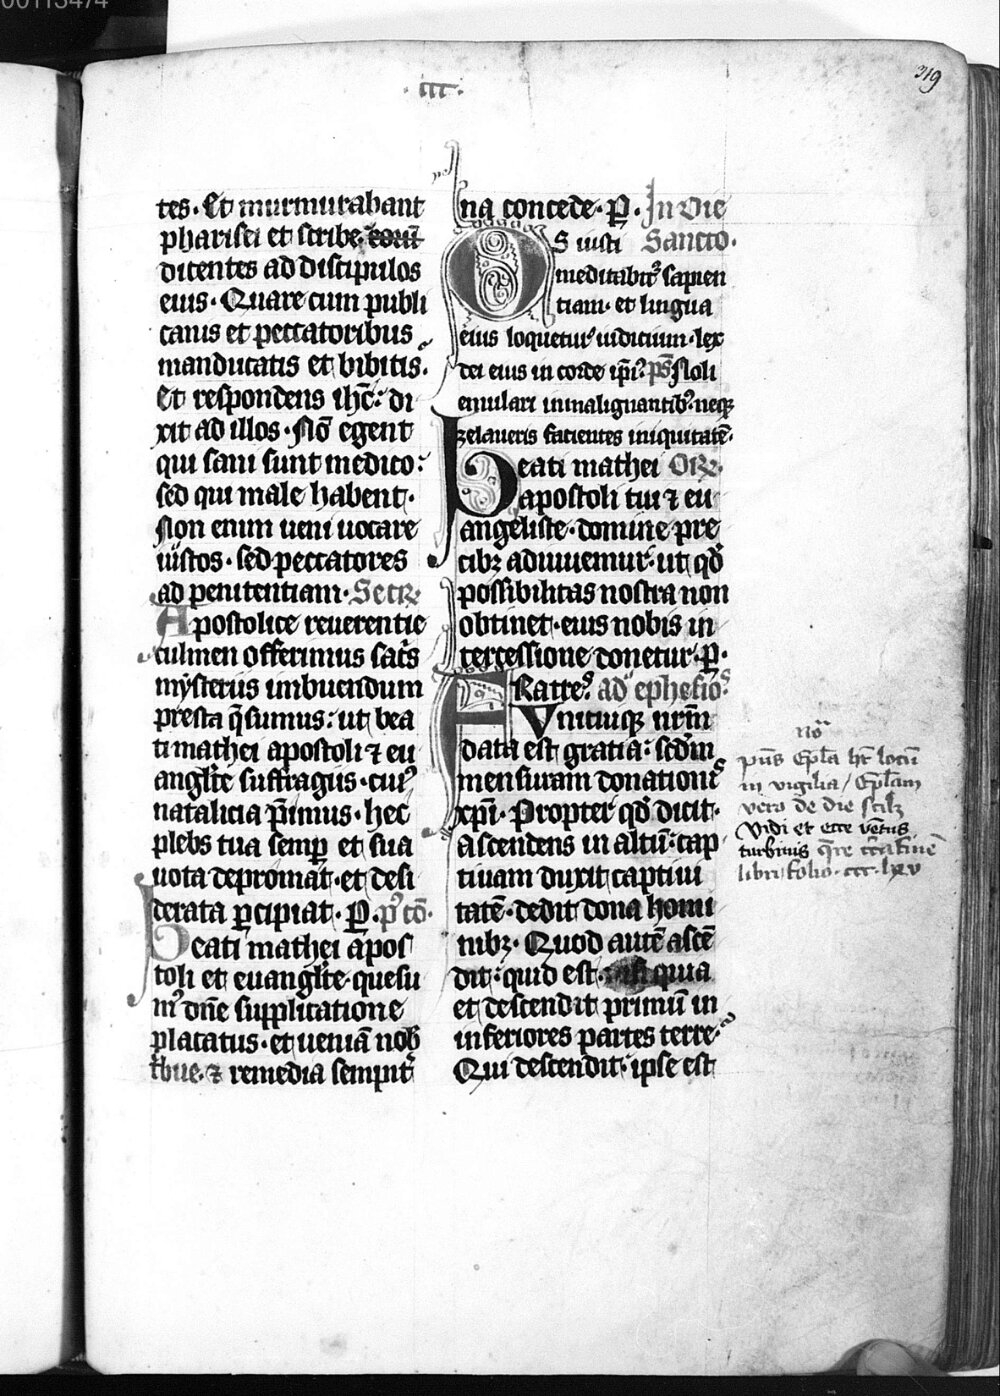 00115474
319
·ccc·
tes· Et murmurabant
pharisei et scribe eoru̅
dicentes ad discipulos
eius· Quare cum publi
canis et peccatoribus
manducatis et bibitis·
Et respondens ihc̅: di
xit ad illos· No̅ egent
qui sani sunt medico:
sed qui male habent·
Non enim ueni uocare
iustos· sed peccatores
ad penitentiam· Secr̅·
Apostolice reuerentie
culmen offerimus sac̅s
mysteriis imbuendum
presta q̅sumus: ut bea
ti mathei apostoli ⁊ eu
angl̅te suffragiis· cuiꝰ
natalicia p̅imus· hec
plebs tua semꝑ et sua
uota depromat· et desi
derata ꝑcipiat· P̲· pꝰ co̅·
Beati mathei apos
toli et euangl̅te· quesu
mꝰ dn̅e supplicatione
placatus· et uenia̅ nob̅
t̅bue· ⁊ remedia sempit̅
na concede· P̲· In Die
OS iusti Sancto·
meditabit᷑ sapien
tiam· et lingua
eius loquetur iudicium· lex
dei eius in corde ip̅iꝰ p̅s Noli
emulari in malignantibꝰ neqꝫ
zelaueris facientes iniquitate̅·
Beati mathei Or̅e·
apostoli tui ⁊ eu
angeliste· domine pre
cibꝫ adiuuemur· ut qd̅
possibilitas nostra non
obtinet· eius nobis in
tercessione donetur· P̲·
FRatreꝰ ad ephesioꝰ
Vnicuiqꝫ nr̅m
data est gratia: scd̅m
mensuram donationiꝰ
xp̅i· Propter qd̅ dicit·
Ascendens in altu̅: cap
tiuam duxit captiui
tate̅· dedit dona homi
nibꝫ· Quod aute̅ asce̅
dit: quid est· nisi quia
et descendit primu̅ in
inferiores partes terre·
Qui descendit· ipse est
no̅
pn̅s Ep̅la ht̅ locu̅
in vigilia / Ep̅lam
vero de die scilꝫ
Vidi et ecce ve̅tus
turbinis q̅re circa fine̅
libri folio· ccc· lxv